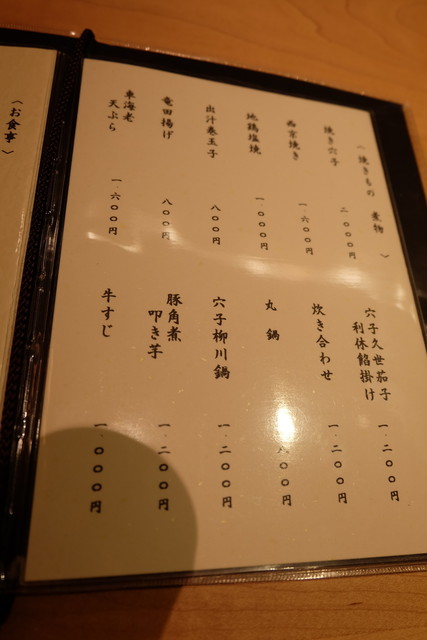 〈焼きもの 煮物〉
焼き穴子 二.〇〇〇円
西京焼き 一.六〇〇円
地鶏塩焼 一.〇〇〇円
出汁巻玉子 八〇〇円
竜田揚げ 八〇〇円
車海老
天ぷら 一.六〇〇円
穴子久世茄子
利休餡掛け 一.二〇〇円
炊き合わせ 一.二〇〇円
丸鍋 〇〇円
穴子柳川鍋 一.二〇〇円
豚角煮
叩き芋 一.二〇〇円
牛すじ 一.〇〇〇円
〈お食事〉